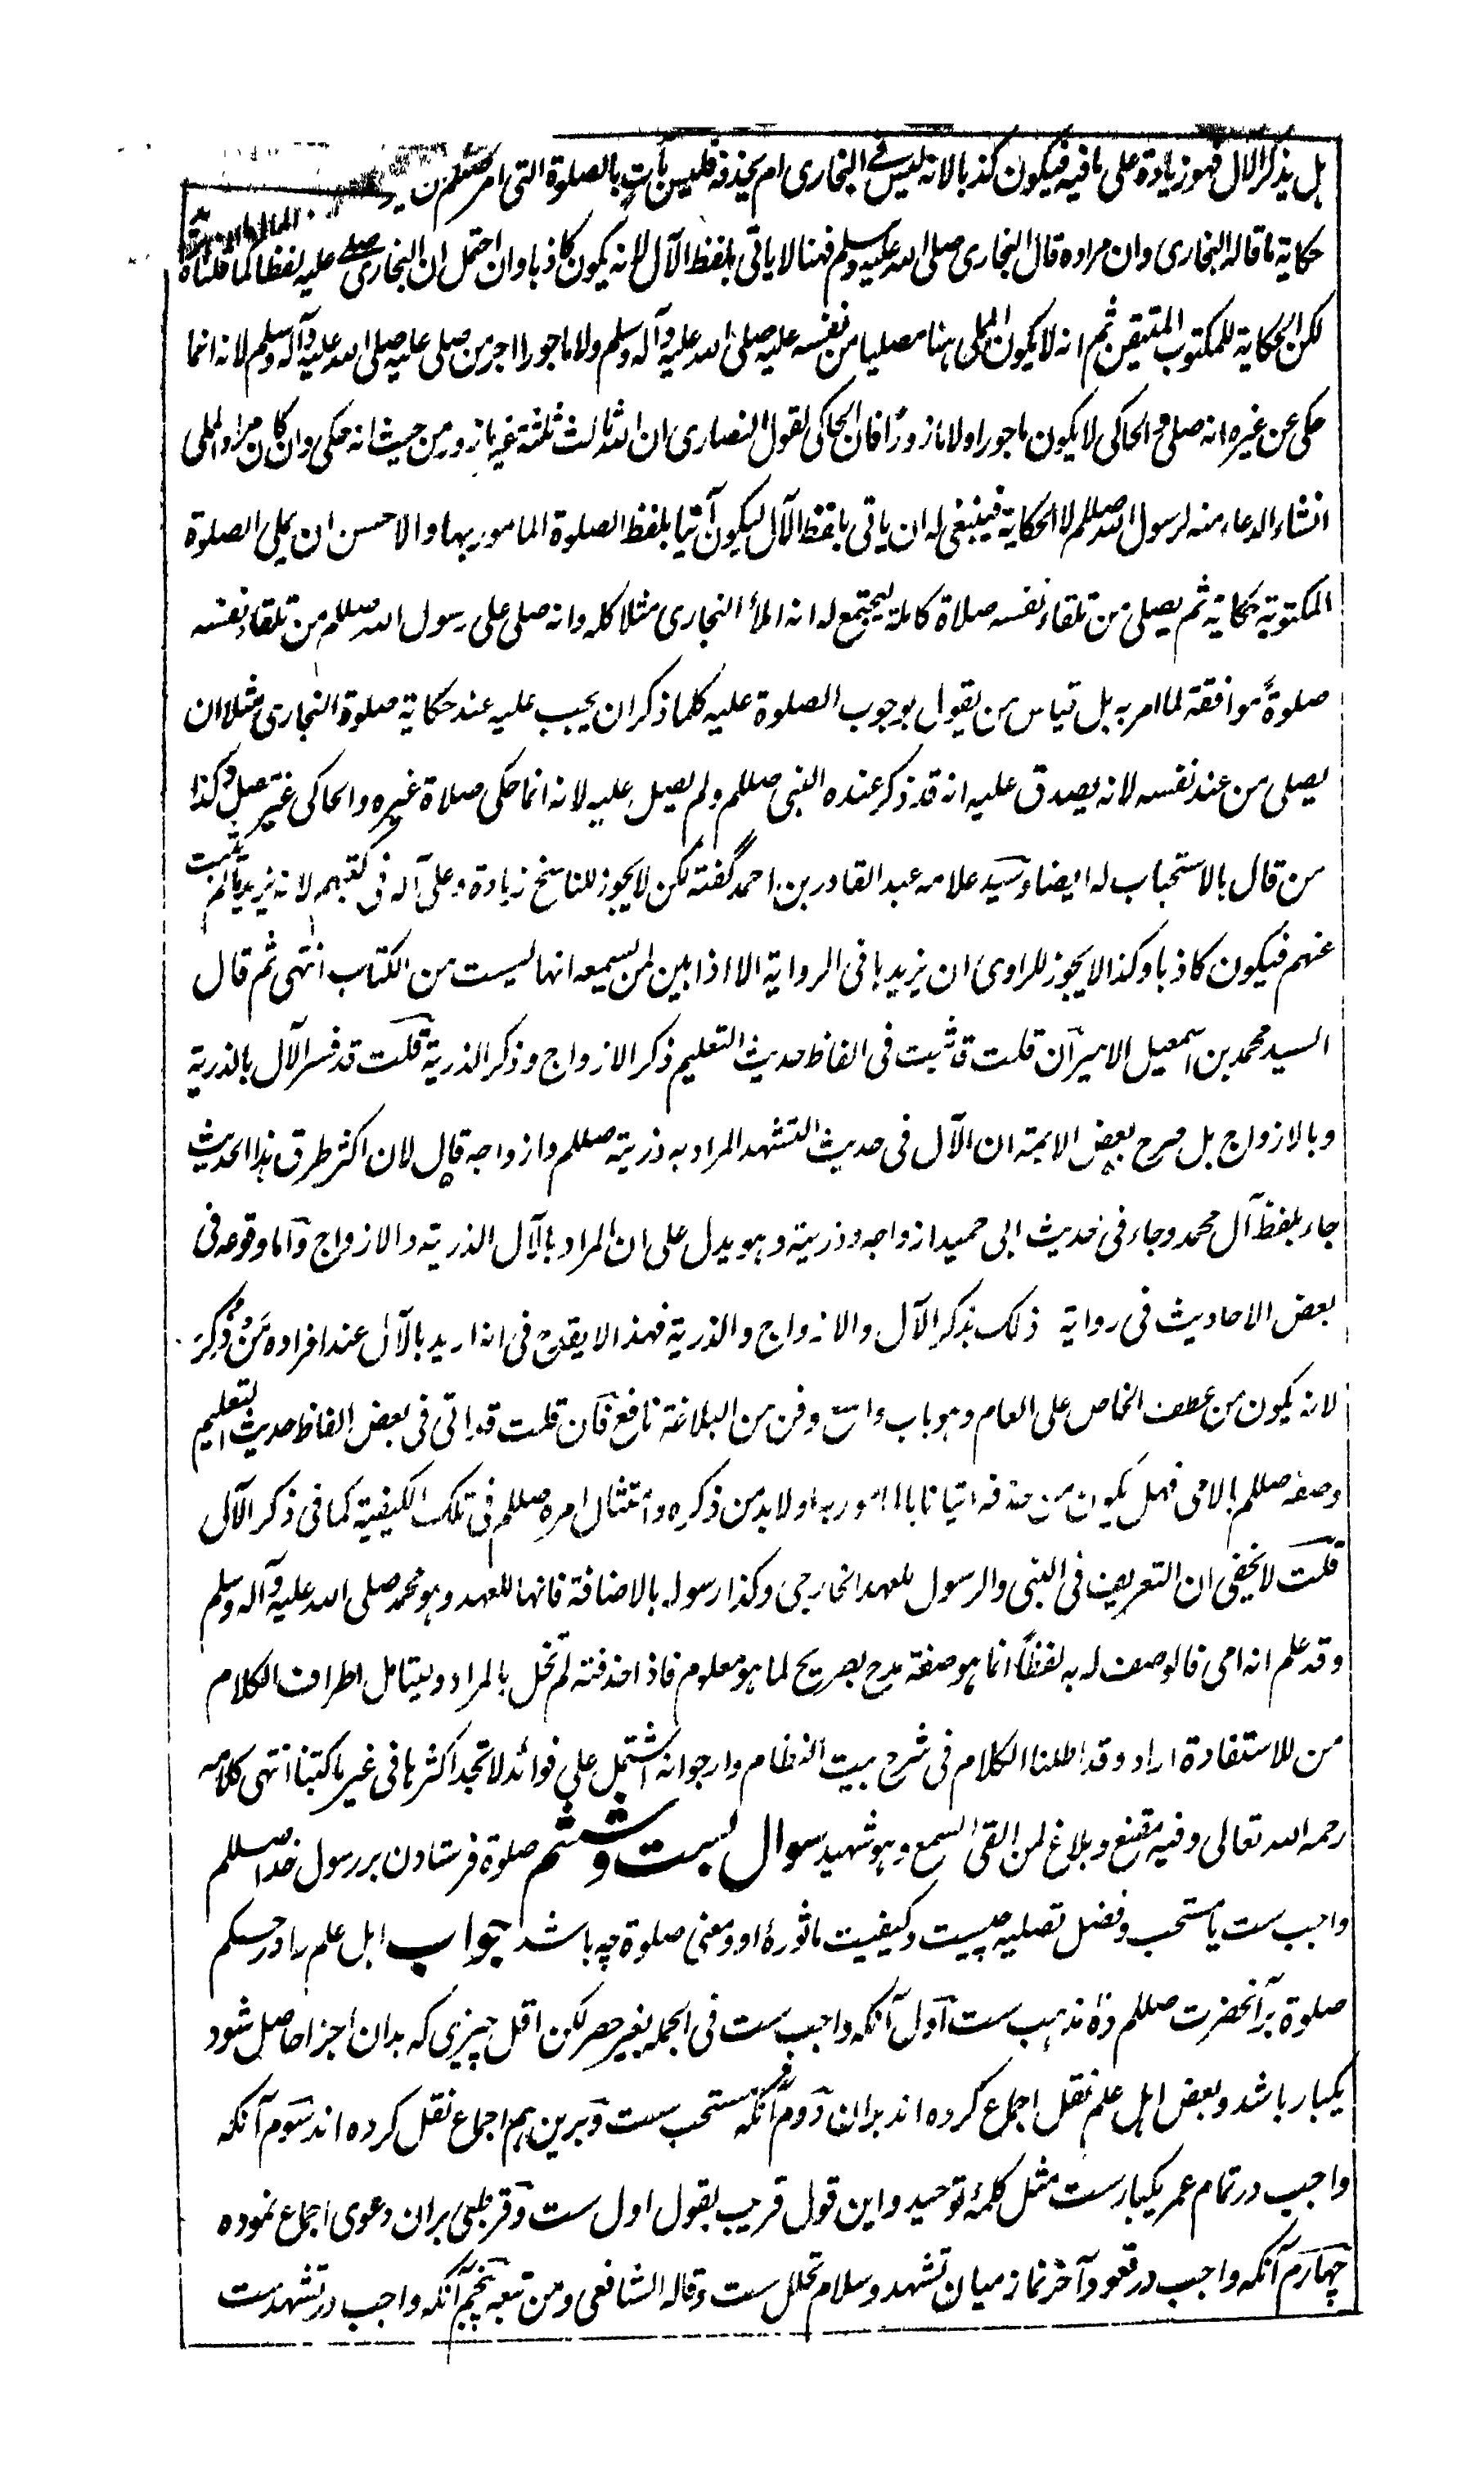 بل يذكر الال فهو زيادة على ما فيه فيكون كذبا لانه ليس فى البخارى ام يحذفه فليس بآتٍ بالصلوة التى امر صللم
حكاية ما قاله البخارى وان مراده قال البخارى صلى الله عليه وسلم فهنا لا ياتى بلفظ الآل لانه يكون كاذبا وان احتمل ان البخارى صلى عليه لفظا كما قلناه
لكن الحكاية للمكتوب المتيقن ثم انه لا يكون المملى هنا مصليا من نفسه عليه صلى الله عليه وآله وسلم ولا ماجورا اجر من صلى عليه صلى الله عليه وآله وسلم لانه انما
حكى عن غيره انه صلى والحاكى لا يكون ماجورا ولا مازورًا فان الحاكى لقول النصارى ان الله ثالث ثلثة غير مازور من حيث انه حكى وان كان مراد المملى
انشاء الدعاء منه لرسول الله صللم لا الحكاية فينبغى له ان ياتى بلفظ الآل ليكون آتيا بلفظ الصلوة المامور بها والاحسن ان يملى الصلوة
المكتوبة حكاية ثم يصلى من تلقاء نفسه صلاة كاملة ليجتمع له انه املأ البخارى مثلا كله وانه صلى على رسول الله صللم من تلقاء نفسه
صلوةً موافقة لما امر به بل قياس من يقول بوجوب الصلوة عليه كلما ذكر ان يجب عليه عند حكاية صلوة البخارى مثلا ان
يصلى من عند نفسه لانه يصدق عليه انه قد ذكر عنده النبى صللم ولم يصل عليه لانه انما حكى صلاة غيره والحاكى غير مصل وكذا
من قال بالاستحباب له ايضا وسيد علامه عبد القادر بن احمد گفته لكن لا يجوز للناسخ زيادة وعلى آله فى كتبهم لانه يزيد ما لم يثبت
عنهم فيكون كاذبا وكذا لا يجوز للراوى ان يزيدها فى الرواية الا اذا بين لمن يسمعه انها ليست من الكتاب انتهى ثم قال
السيد محمد بن اسمعيل الامير ان قلت قد ثبت فى الفاظ حديث التعليم ذكر الازواج وذكر الذرية قلت قد فسر الآل بالذرية
وبالازواج بل صرح بعض الايمة ان الآل فى حديث التشهد المراد به ذريته صللم وازواجه قال لان اكثر طرق هذا الحديث
جاء بلفظ آل محمد وجاء فى حديث ابى حميد ازواجه وذريته وهو يدل على ان المراد بالآل الذرية والازواج واما وقوعه فى
بعض الاحاديث فى رواية ذلك بذكر الآل والازواج والذرية فهذا لا يقدح فى انه اريد بالآل عند افراده مَنْ ذُكِرَ
لانه يكون من عطف الخاص على العام وهو باب واسع وفن من البلاغة نافع فان قلت قد اتى فى بعض الفاظ حديث التعليم
وصفه صللم بالامى فهل يكون من حذفه اتيانا بالمامور به او لابد من ذكره وامتثال امره صللم فى تلك الكيفية كما فى ذكر الآل
قلت لا يخفى ان التعريف فى النبى والرسول للعهد الخارجى وكذا رسوله بالاضافة فانها للعهد وهو محمد صلى الله عليه وآله وسلم
وقد علم انه امى فالوصف له به لفظًا انما هو صفة مدح بصريح لما هو معلوم فاذا حذفته لم تخل بالمراد وليتامل اطراف الكلام
من للاستفادة اراد وقد اطلنا الكلام فى شرح بيت النظام وارجو انه اشتمل على فوائد لا تجد اكثرها فى غير ما كتبنا انتهى كلامه
رحمه الله تعالى وفيه مقنع وبلاغ لمن القى السمع وهو شهيد سوال بست وششم صلوة فرستادن بر رسول خدا صللم
واجب ست يا مستحب وفضل تصليه چيست وكيفيت ماثورۀ او ومعنى صلوة چه باشد جواب اهل علم را در حكم
صلوة بر آنحضرت صللم ده مذهب ست اول آنكه واجب ست فى الجمله بغير حصر لكن اقل چيزى كه بدان اجزا حاصل شود
يكبار باشد وبعض اهل علم نقل اجماع كرده اند بران دوم آنكه مستحب ست وبرين هم اجماع نقل كرده اند سوم آنكه
واجب در تمام عمر يكبار ست مثل كلمۀ توحيد واين قول قريب بقول اول ست وقرطبى بران دعوى اجماع نموده
چهارم آنكه واجب در قعود آخر نماز ميان تشهد وسلام تحلل ست وقاله الشافعى ومن تبعه پنجم آنكه واجب در تشهد ست